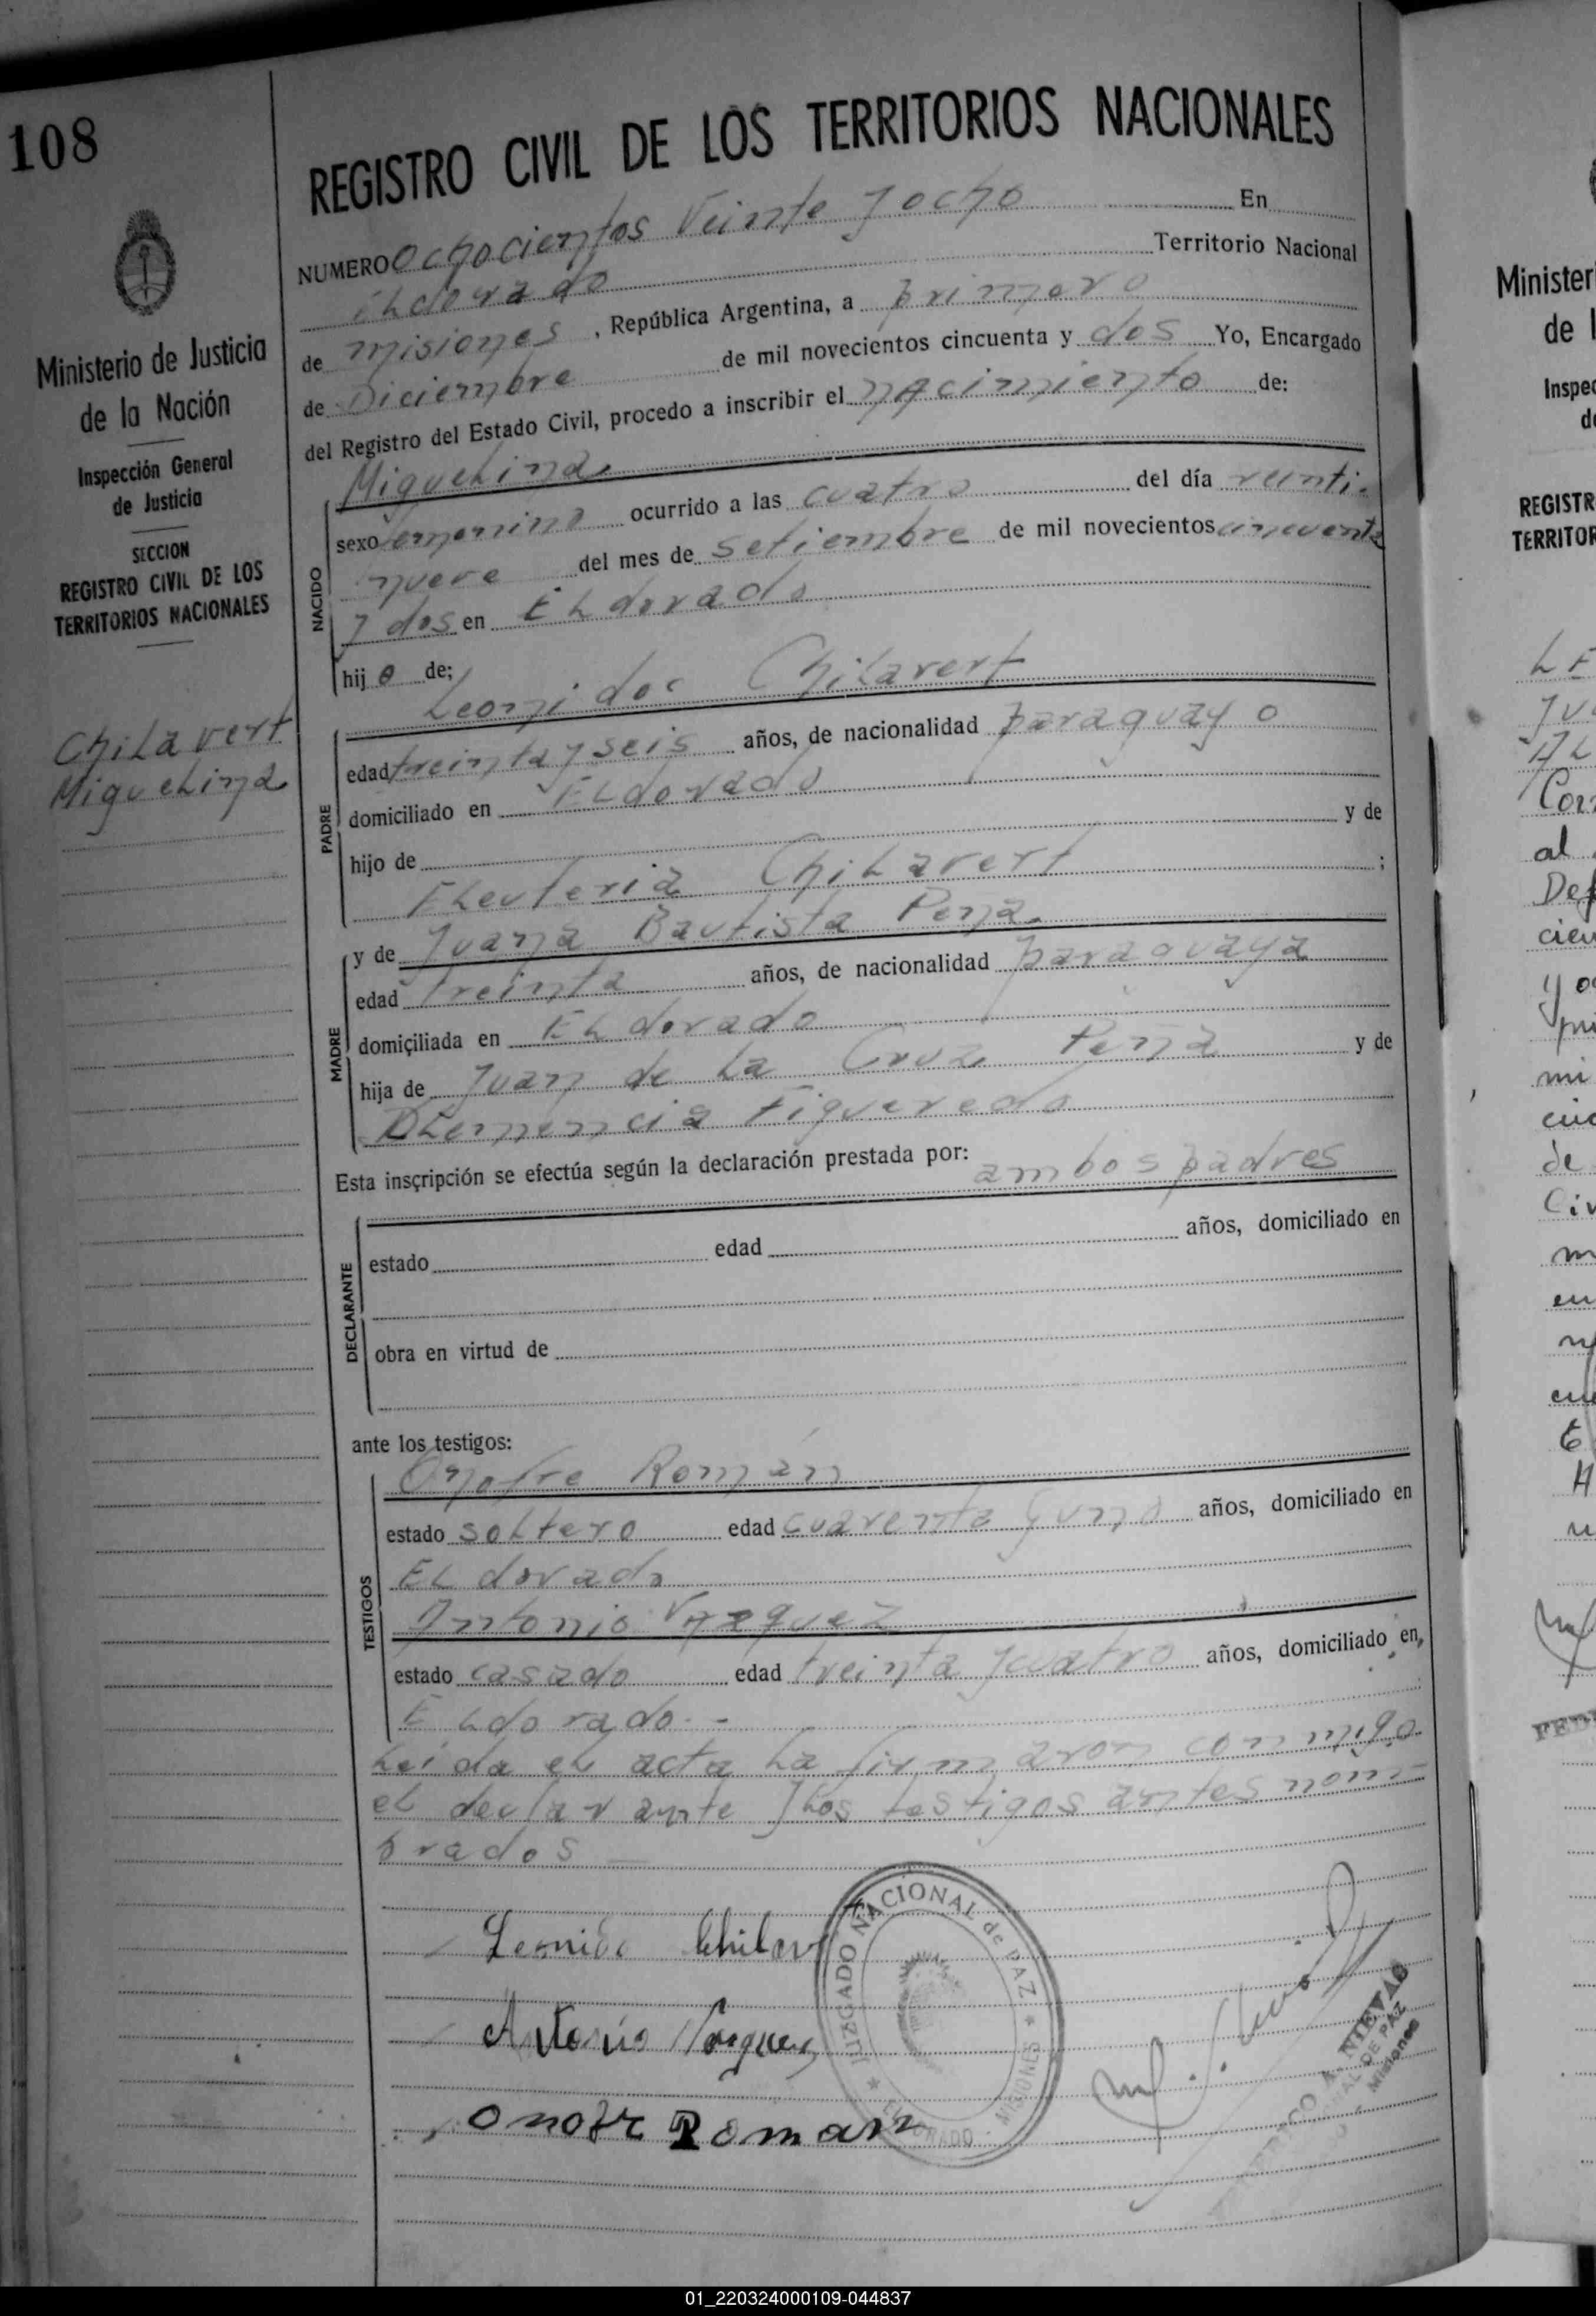 108
REGISTRO CIVIL DE LOS TERRITORIOS NACIONALES
NUMERO Ochocientos Veinte y ocho En
Eldorado Territorio Nacional
de misiones , República Argentina, a primero
de Diciembre de mil novecientos cincuenta y dos Yo, Encargado
del Registro del Estado Civil, procedo a inscribir el nacimiento de:
Ministerio de Justicia
de la Nación
Inspección General
de Justicia
SECCION
REGISTRO CIVIL DE LOS
TERRITORIOS NACIONALES
Chilavert
Miguelina
NACIDO
Miguelina
sexo femenino ocurrido a las cuatro del día veinti-
nueve del mes de setiembre de mil novecientos cincuenta
y dos en Eldorado
hij a de;
PADRE
Leonidas Chilavert
edad treinta y seis años, de nacionalidad paraguayo
domiciliado en Eldorado
hijo de y de
Eleuteria Chilavert ;
MADRE
y de Juana Bautista Pena.
edad treinta años, de nacionalidad paraguaya
domiciliada en Eldorado
hija de Juan de la Cruz Pena y de
Figueredo
Esta inscripción se efectúa según la declaración prestada por:
ambos padres
DECLARANTE
estado edad años, domiciliado en
obra en virtud de
ante los testigos:
TESTIGOS
Onofre Román
estado soltero edad cuarenta y uno años, domiciliado en
Eldorado
Antonio Vazquez
estado casado edad treinta y cuatro años, domiciliado en
Eldorado. -
Leida el acta la firmaron conmigo
el declarante y los testigos antes nom-
brados —
Leonida Chilavert
Antonio Vazquez
Onofre Roman
JUZGADO NACIONAL de PAZ * MISIONES ELDORADO *
A. NIEVAS
DE PAZ
Misiones
Minister
de l
Inspec
de
REGISTR
TERRITOR
al
de
mi
en
FED
01_220324000109-044837